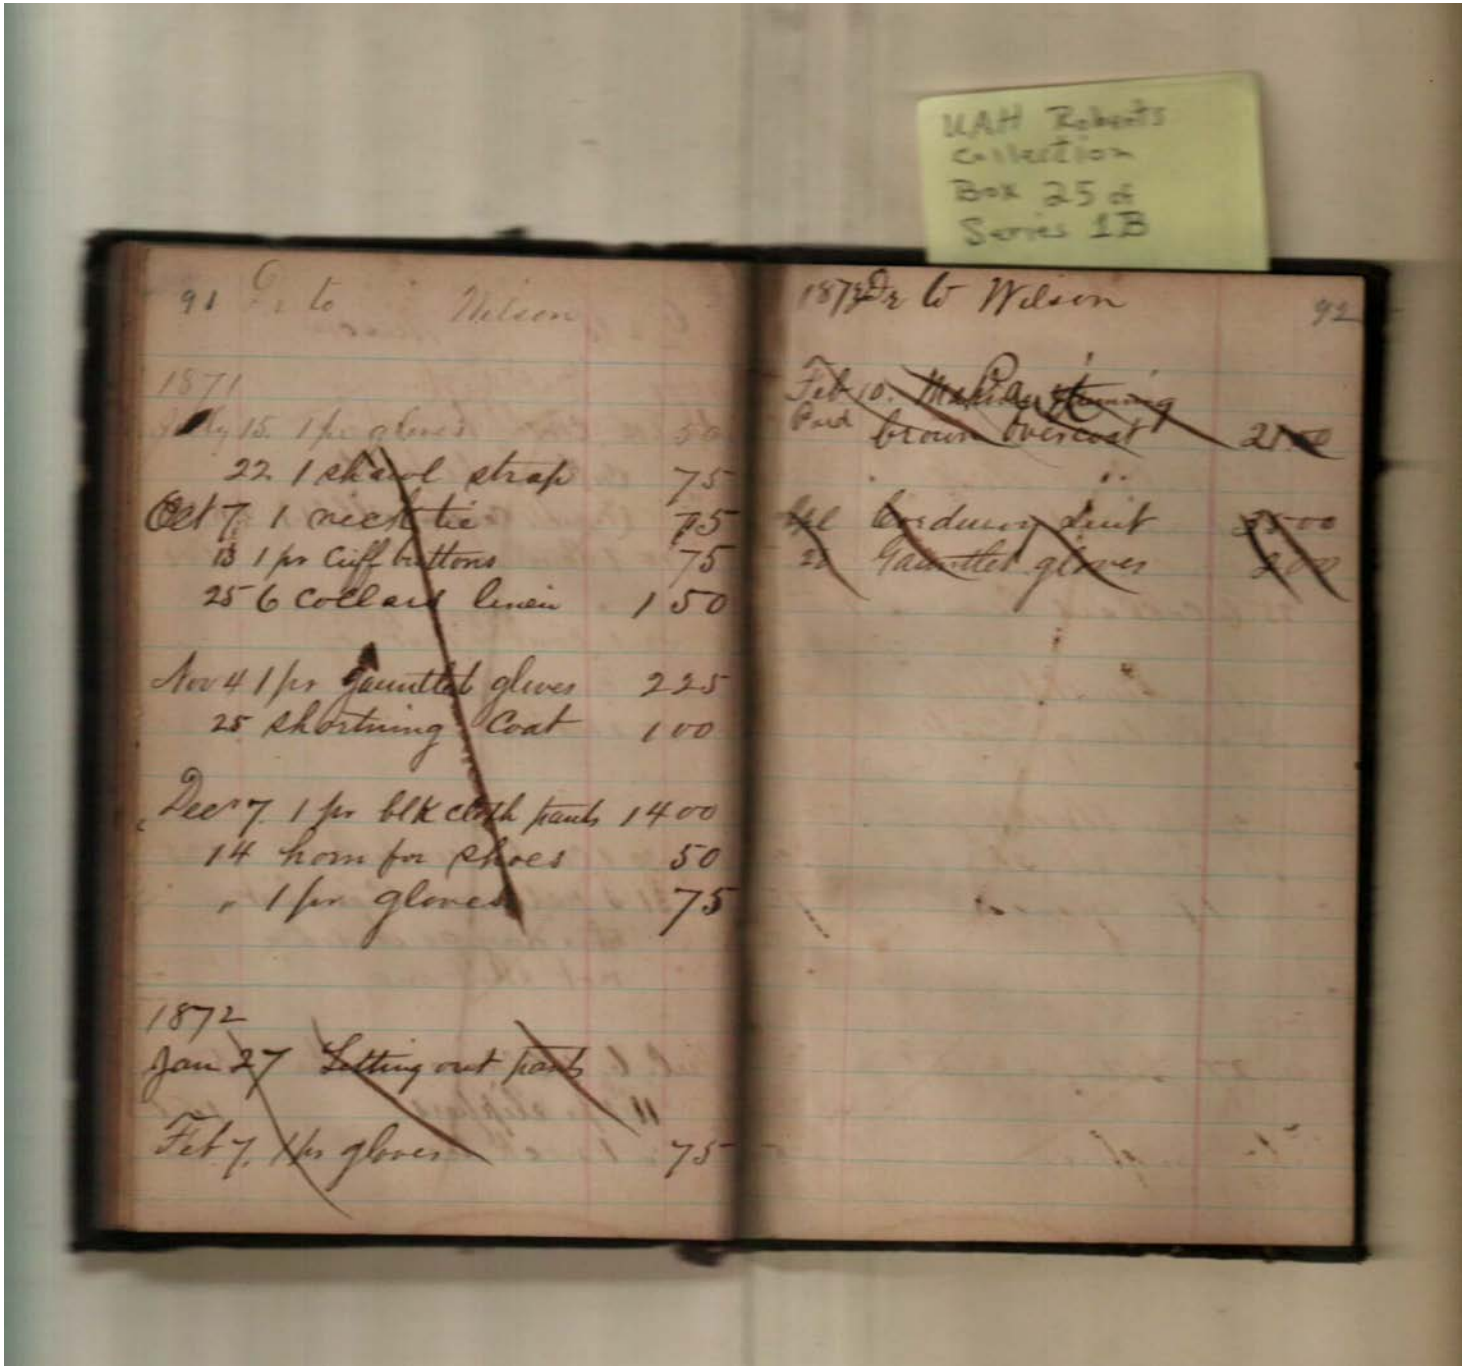 UAH Roberts
Collection
Box 25 of
Series 1B
91 Dr to Wilson
1871
15. 1 pr gloves 50
22 1 shawl strap 75
Oct 7. 1 neck tie 75
13 1 pr cuff buttons 75
25 6 collars linen 1 50
Nov 4 1 pr gauntlet gloves 2 25
25 shortning coat 1 00
Decr 7. 1 pr blk cloth pants 14 00
14 horn for shoes 50
" 1 pr gloves 75
1872
Jan 27 Letting out pants
Feb 7. 1 pr gloves 75
Dr to Wilson 92
Feb 10. Making
Paid brown Overcoat
Corduroy Suit
Gauntlet gloves